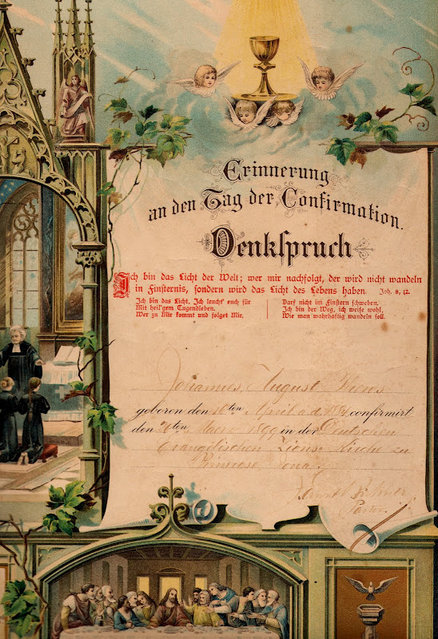 Erinnerung
an den Tag der Confirmation.
Denkspruch
Ich bin das Licht der Welt; wer mir nachfolgt, der wird nicht wandeln
in Finsternis, sondern wird das Licht des Lebens haben. Joh. 8, 12.
Ich bin das Licht, Ich leucht' euch für
Mit heil'gem Tugendleben.
Wer zu Mir kommt und folget Mir,
Darf nicht im Finstern schweben.
Ich bin der Weg, ich weise wohl,
Wie man wahrhaftig wandeln soll.
August
geboren den 18ten April a.d. confirmirt
den in der Deutschen
Evangelischen Zions Kirche zu
Primrose
Pastor